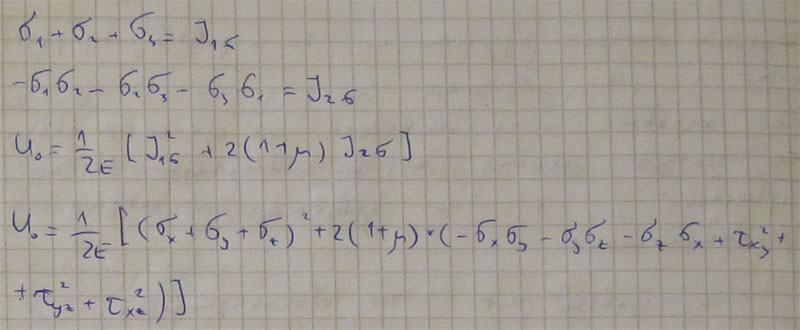 σ₁ + σ₂ + σ₃ = J₁σ
-σ₁σ₂ - σ₂σ₃ - σ₃σ₁ = J₂σ
u₀ = 1/2E [J₁σ² + 2(1+μ) J₂σ]
u₀ = 1/2E [(σx + σy + σz)² + 2(1+μ)·(-σxσy - σyσz - σzσx + τxy² +
+ τyz² + τxz²)]